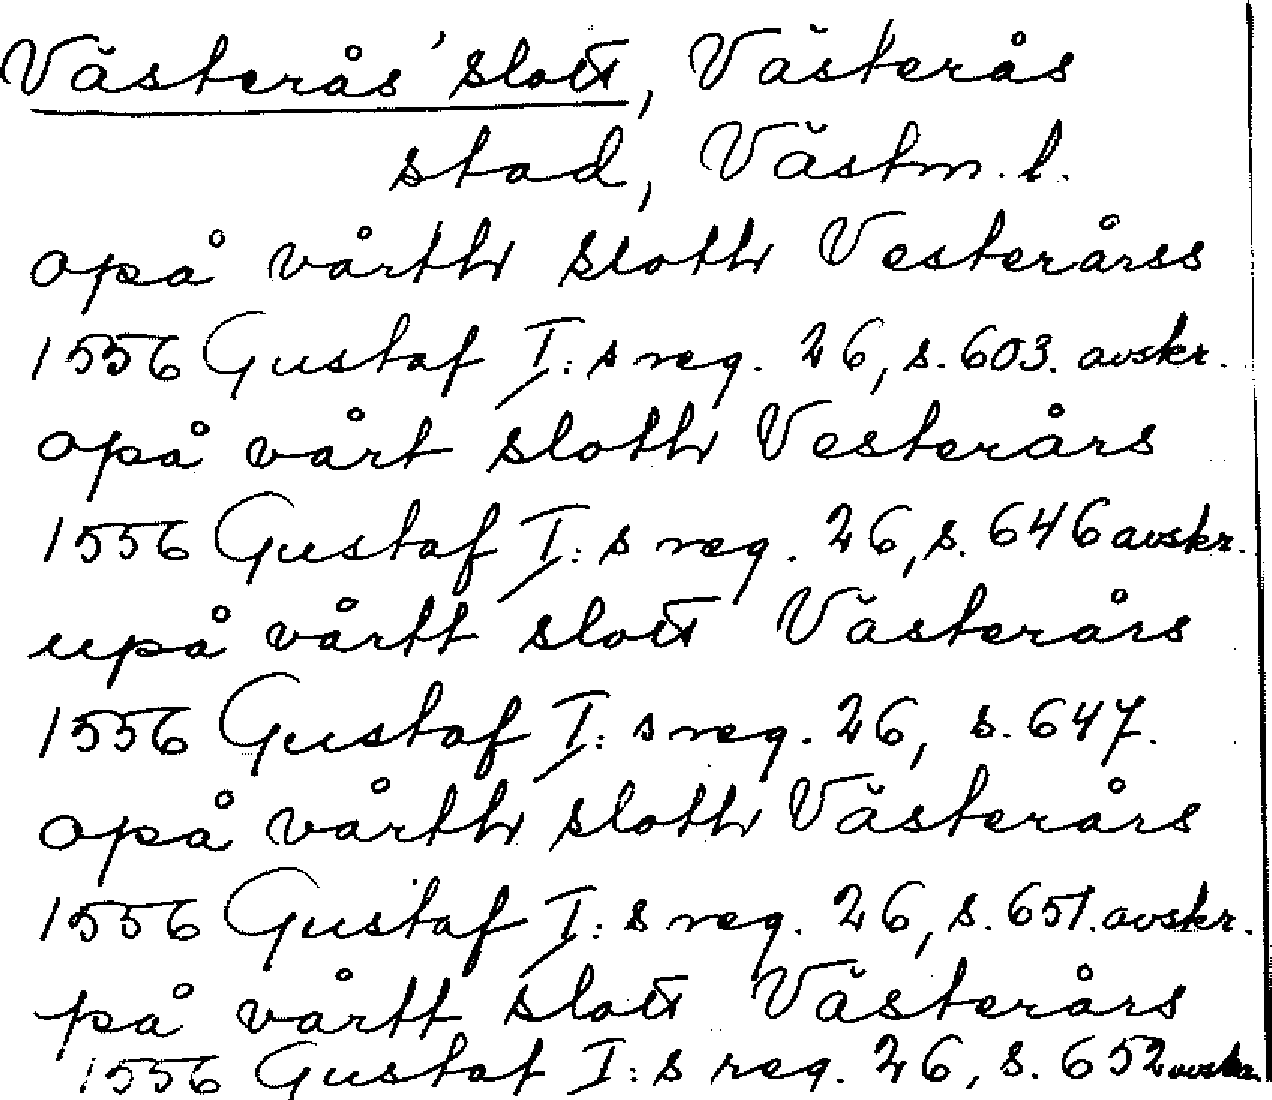 Västerås slott, Västerås
stad, Västm. l.
opå vårth sloth Vesterårss
1556 Gustaf I:s reg. 26, s. 603. avskr.
opå vårt sloth Vesterårs
1556 Gustaf I:s reg. 26, s. 646 avskr.
upå vårtt slott Västerårs
1556 Gustaf I:s reg. 26, s. 647.
opå vårth sloth Västerårs
1556 Gustaf I:s reg. 26, s. 651. avskr.
på vårtt slott Västerårs
1556 Gustaf I:s reg. 26, s. 652 avskr.